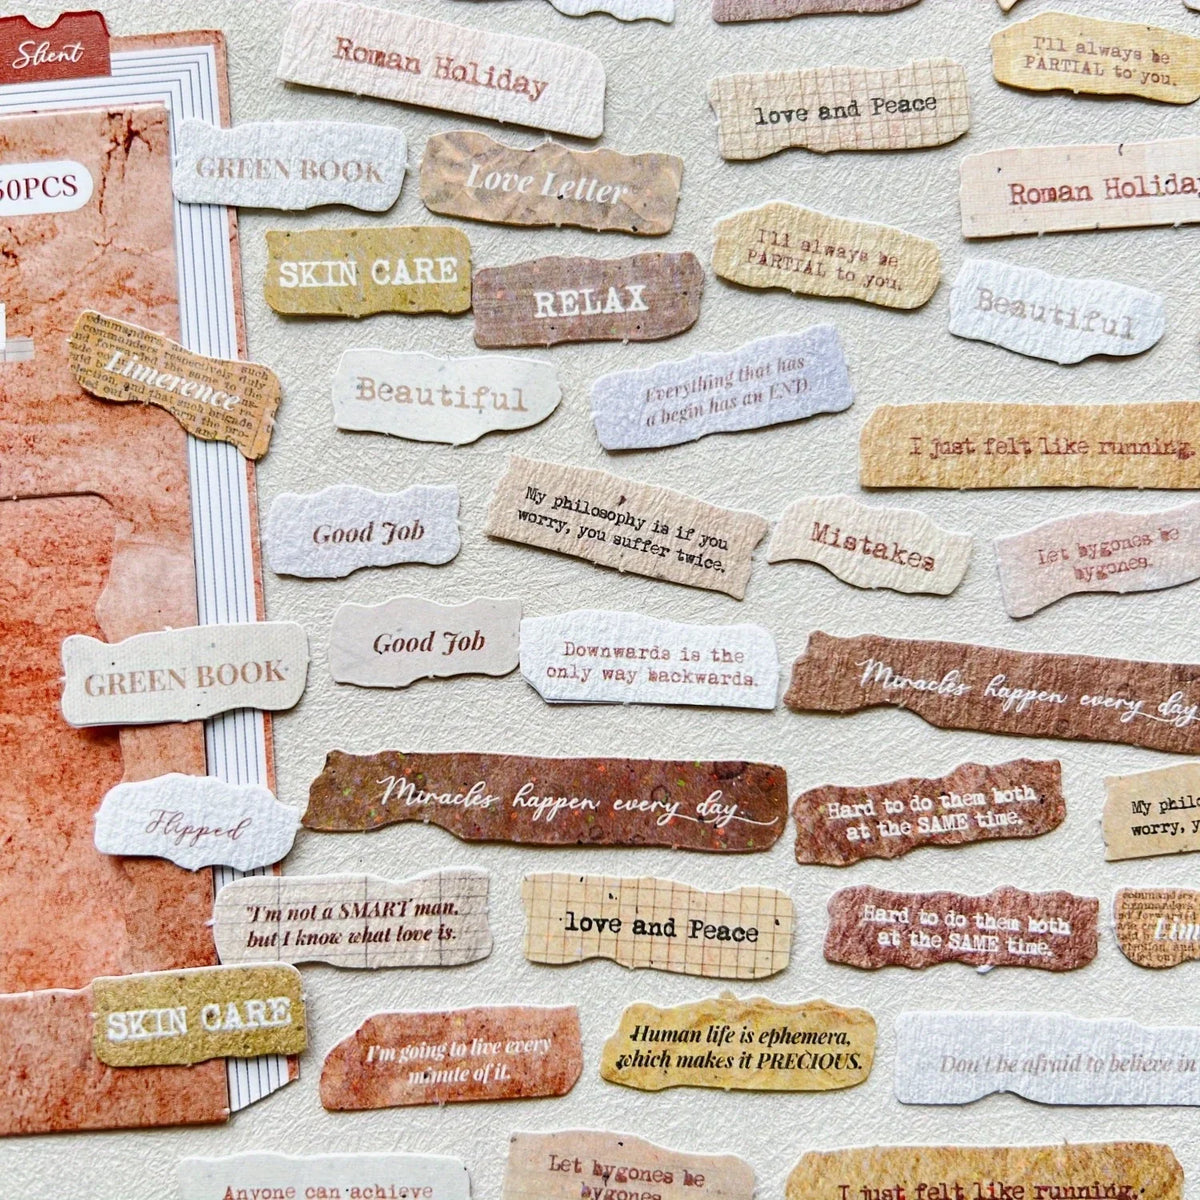 Slient
Roman Holiday
I'll always be
PARTIAL to you.
love and Peace
GREEN BOOK
Love Letter
50PCS
Roman Holiday
I'll always be
PARTIAL to you.
SKIN CARE
RELAX
Beautiful
commanders respectively such
Limerence
Beautiful
Everything that has
a begin has an END.
I just felt like running.
Good Job
My philosophy is if you
worry, you suffer twice.
Mistakes
Let bygones be
bygones.
GREEN BOOK
Good Job
Downwards is the
only way backwards.
Miracles happen every day.
Miracles happen every day.
Hard to do them both
at the SAME time.
My philo
worry, y
Flipped
"I'm not a SMART man.
but I know what love is.
love and Peace
Hard to do them both
at the SAME time.
Lim
SKIN CARE
I'm going to live every
minute of it.
Human life is ephemera,
which makes it PRECIOUS.
Don't be afraid to believe in
Anyone can achieve
Let bygones be
bygones.
I just felt like running.